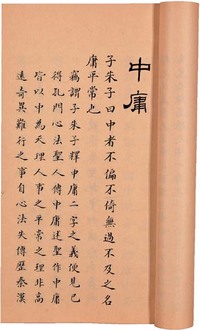 中庸
子朱子曰中者不偏不倚無過不及之名
庸平常也
竊謂子朱子釋中庸二字之義便見已
得孔門心法聖人傳中庸述聖作中庸
皆以中為天理人事之平常之理非高
遠奇異難行之事自心法失傳歷秦漢